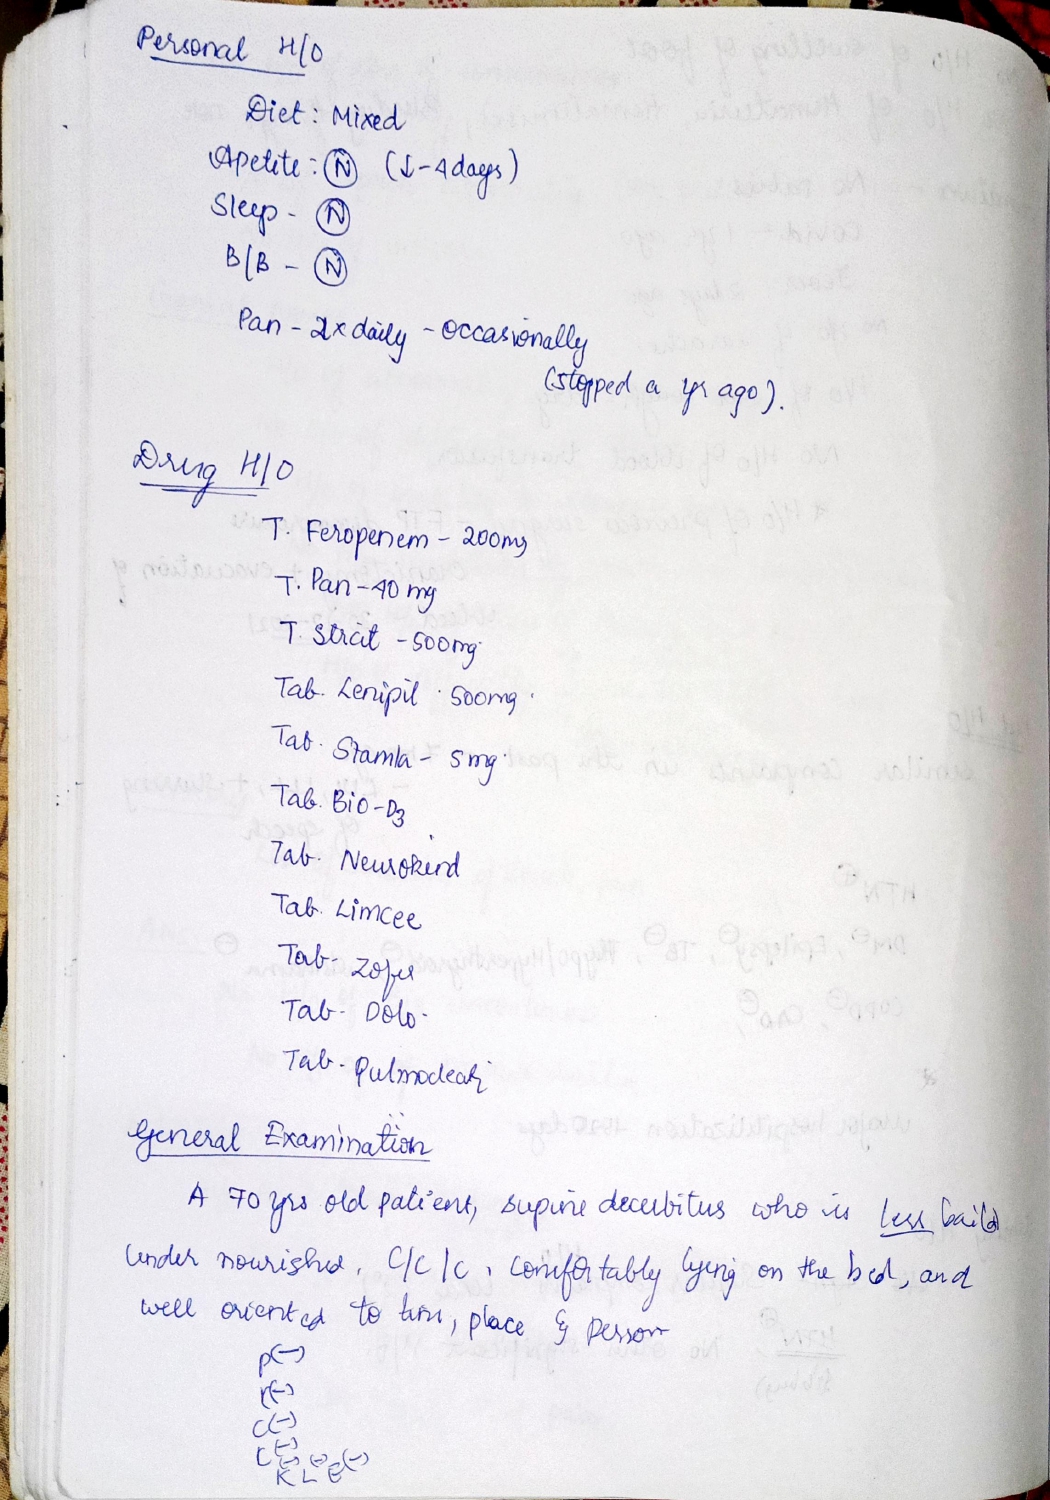 Personal H/O
Diet : Mixed
Apetite : (N) (↓ - 4 days)
Sleep - (N)
B/B - (N)
Pan - 2x daily - occasionally
(stopped a yr ago).
Drug H/O
T. Feropenem - 200mg
T. Pan - 40 mg
T. Strcit - 500mg
Tab. Lenipil 500mg
Tab. Stamla - 5mg
Tab. Bio-D3
Tab. Neurokind
Tab. Limcee
Tab- Zofer
Tab- Dolo-
Tab-
General Examination
A 70 yrs old patient, supine decubitus who is less build
under nourished, C/C/C, comfortably lying on the bed, and
well oriented to time, place & person
P(-)
I(-)
C(-)
C(-)
K(-) L(-) E(-)